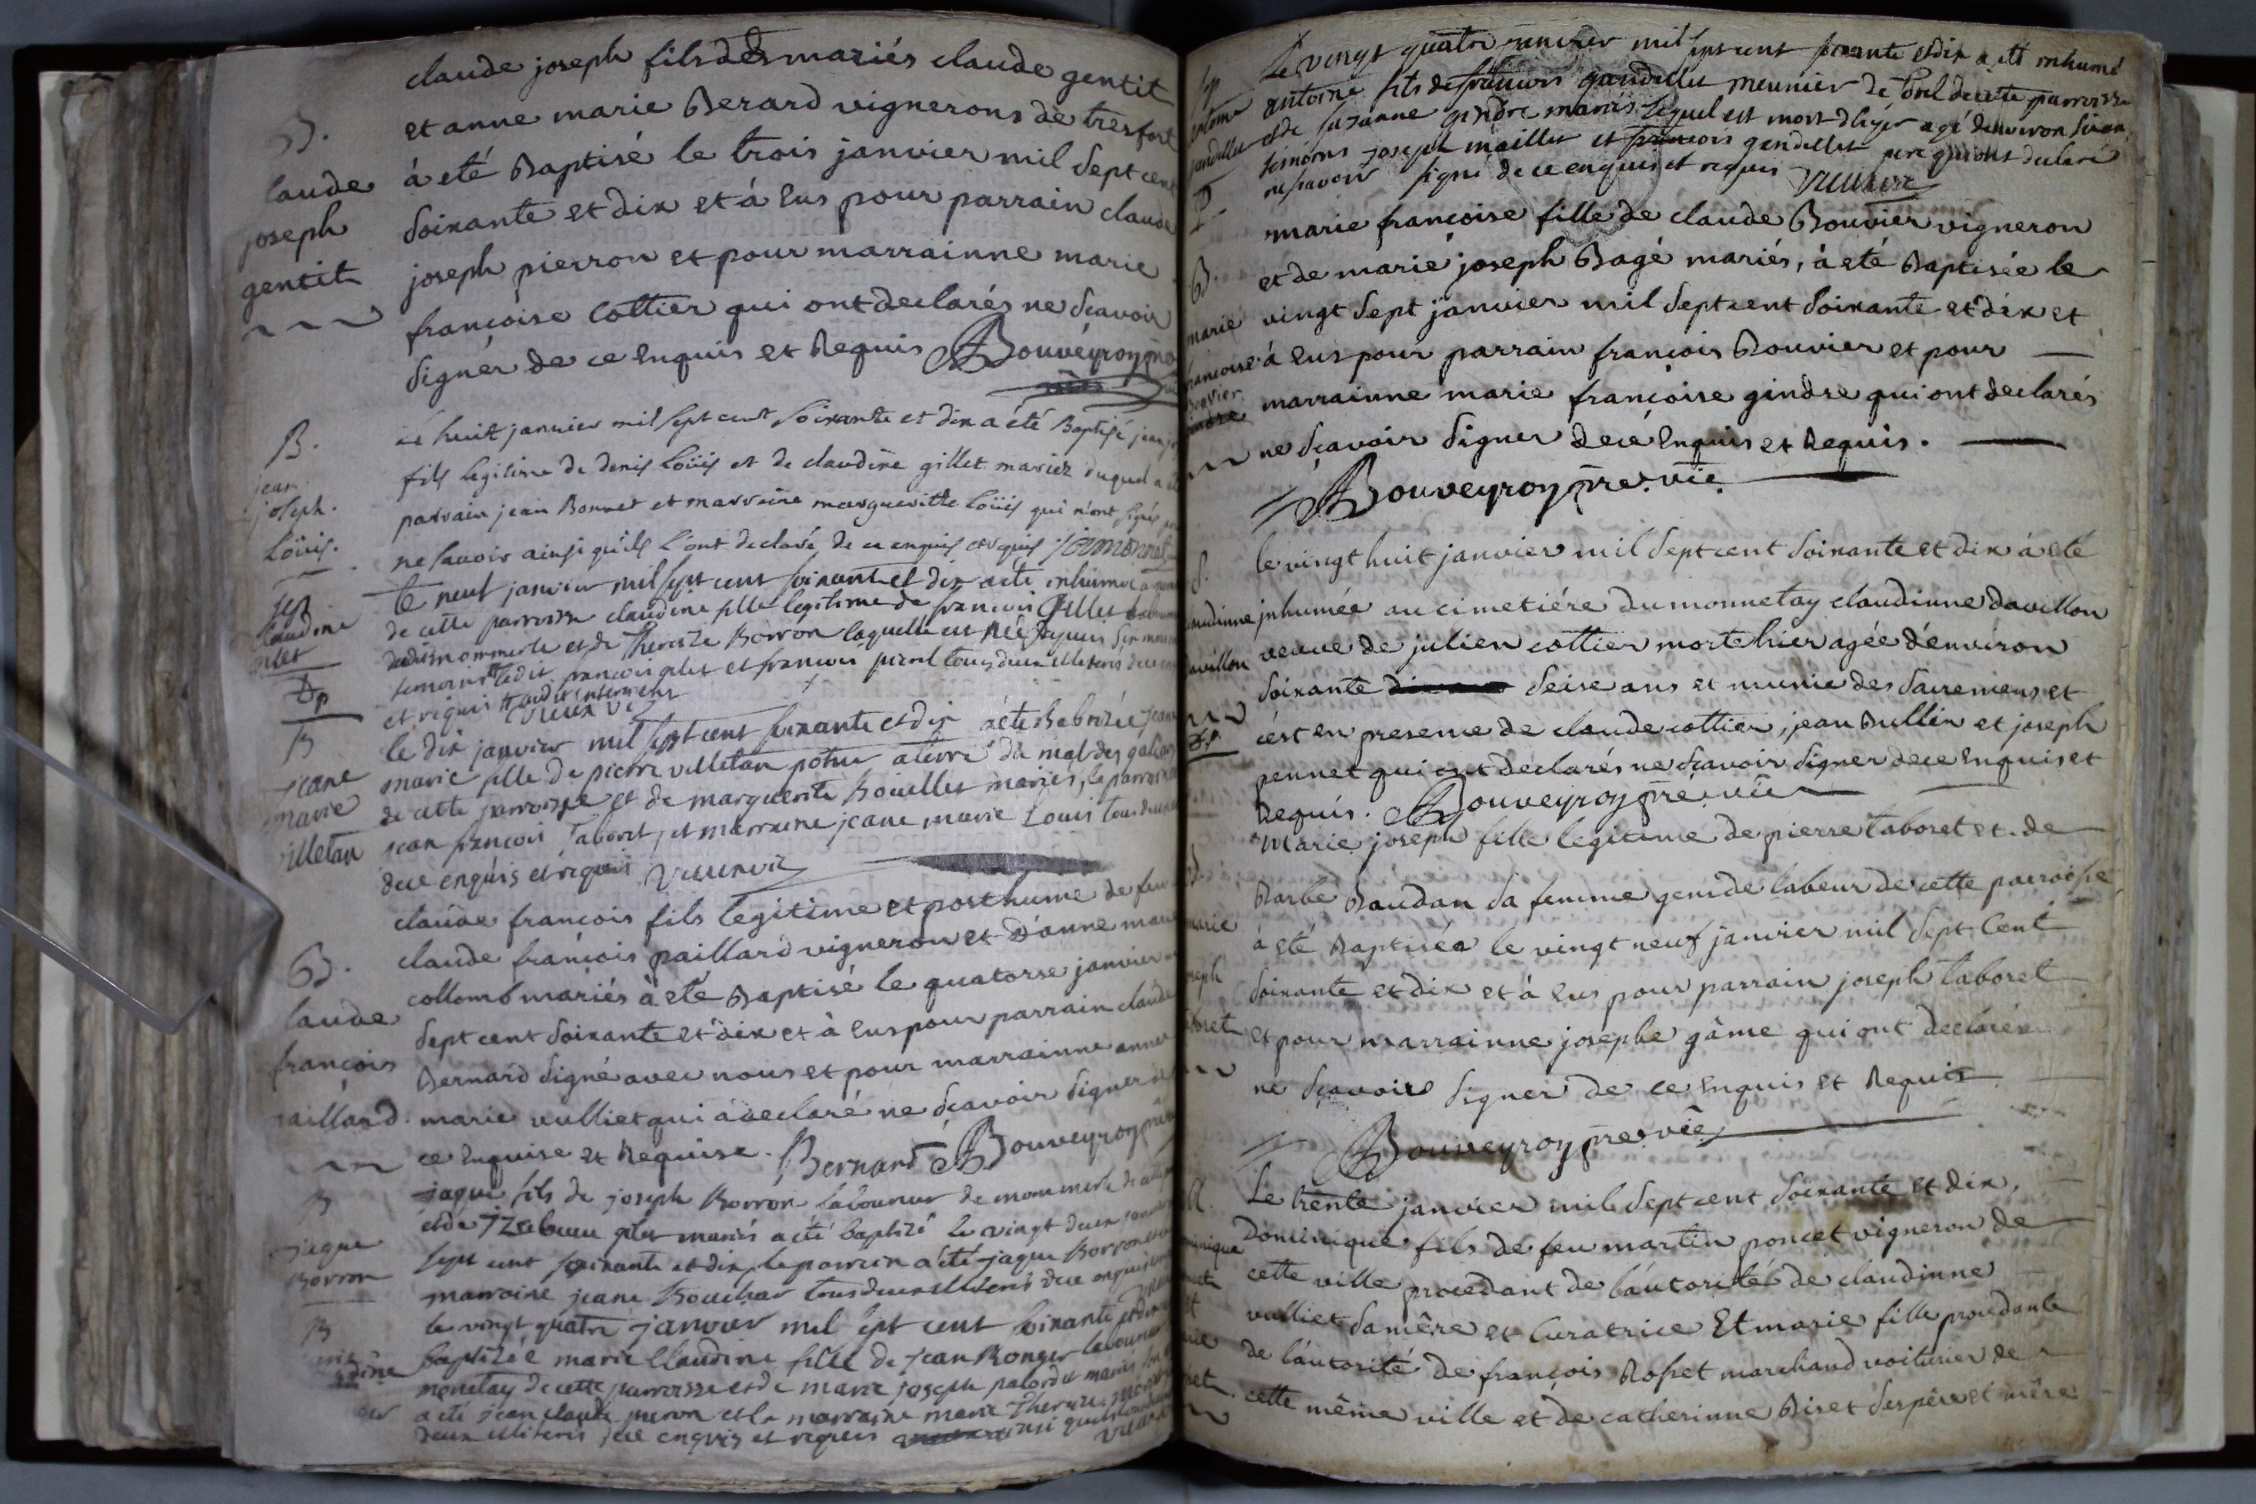 B.
laude
joseph
gentit
claude joseph fils des mariés claude gentit
et anne marie Berard vignerons de tresfort
à eté Baptisé le trois janvier mil sept cent
soixante et dix et à eus pour parrain claude
joseph pierron et pour marrainne marie
françoise Cottier qui ont declarés ne sçavoir
signer de ce Enquis et Requis Bouveyron
B.
jean
joseph.
Loüis.
le huit janvier mil sept cent soixante et dix a été Baptisé jean
fils legitime de denis Loüis et de claudine gillet mariez duquel a
parrain jean Bonnet et marraine margueritte Loüis qui n'ont signés
ne savoir ainsi quils l'ont declaré de ce enquis et requis
sep
claudine
gilet
le neuf janvier mil sept cent soixante et dix a ete inhumée
de cette parroisse claudine fille legitime de francois gillet
et de Thereze Borron laquelle est
temoins ledit françois gilet et francois tous deux illiteres de ce
et requis
B
jeane
marie
villetan
le dix janvier mil sept cent soixante et dix a été Babtizée jeane
marie fille de pierre villetan
de cette parroisse et de marguerite Bouillet mariés, le parrain
jean françois Taboret, et marraine jeane marie Louis tous deux
de ce enquis et requis
B.
laude
françois
paillard
claude françois fils legitime et posthume de feu
claude françois paillard vigneron et d'anne marie
collomb mariés à eté Baptisé le quatorse janvier
sept cent soixante et dix et à eus pour parrain claude
Bernard signé avec nous et pour marrainne anne
marie vulliet qui à declaré ne sçavoir signer de
ce Enquise et Requise. Bernard Bouveyron
B
jaque
Borron
jaque fils de joseph Borron laboureur de
et de Izabeau gilet mariés a été baptizé le vingt deux
sept cent soixante et dix, le parrain a été jaque Borron
marraine jeane Bouchar tous deux illiteres de ce enquis
B
le vingt quatre janvier mil sept cent soixante et dix
baptizée marie Claudine fille de jean Ronger laboureur
monetay de cette parroisse et de marie joseph mariés
a été jean claude et la marraine marie Thereze
deux illiteres de ce enquis et requis
Le vingt quatre janvier mil sept cent soixante et dix a eté inhumé
antoine fils de françois gandillet meunier de de cette parroisse
et de suzanne gindre mariés lequel est mort d'hyer agé d'environ
temoins joseph maillet et francois gandillet pere qui ont declaré
ne savoir signé de ce enquis et requis
B.
marie
francoise
Bouvier
marie françoise fille de claude Bouvier vigneron
et de marie joseph Bagé mariés, à eté Baptisée le
vingt sept janvier mil sept cent soixante et dix et
à eus pour parrain françois Bouvier et pour
marrainne marie françoise gindre qui ont declarés
ne sçavoir signer de ce Enquis et Requis.
Bouveyron pre. vic.
S.
claudinne
davillon
le vingt huit janvier mil sept cent soixante et dix à eté
inhumée au cimetiére du monnetay claudinne davillon
veuve de julien cottier morte hier agée d'environ
soixante seise ans et munie des sacremens et
c'est en presence de claude cottier, jean Bullin et joseph
pennet qui ont declarés ne sçavoir signer de ce Enquis et
Requis. Bouveyron pre. vic
marie
joseph
taboret
Marie joseph fille legitime de pierre taboret et de
Barbe Baudan sa femme gens de labeur de cette parroisse
à eté Baptisée le vingt neuf janvier mil sept Cent
soixante et dix et à eus pour parrain joseph taboret
et pour marrainne josephe gâme qui ont declarés
ne sçavoir signer de ce Enquis et Requis
Bouveyron pre. vic
Le trente janvier mil sept cent soixante et dix,
Dominique fils de feu martin poncet vigneron de
cette ville procedant de l'autorité de claudinne
vulliet sa mêre et Curatrice Et marie fille procedante
de l'autorité de françois Rosset marchand voiturier de
cette même ville et de catherinne Biset ses pêre et mêre